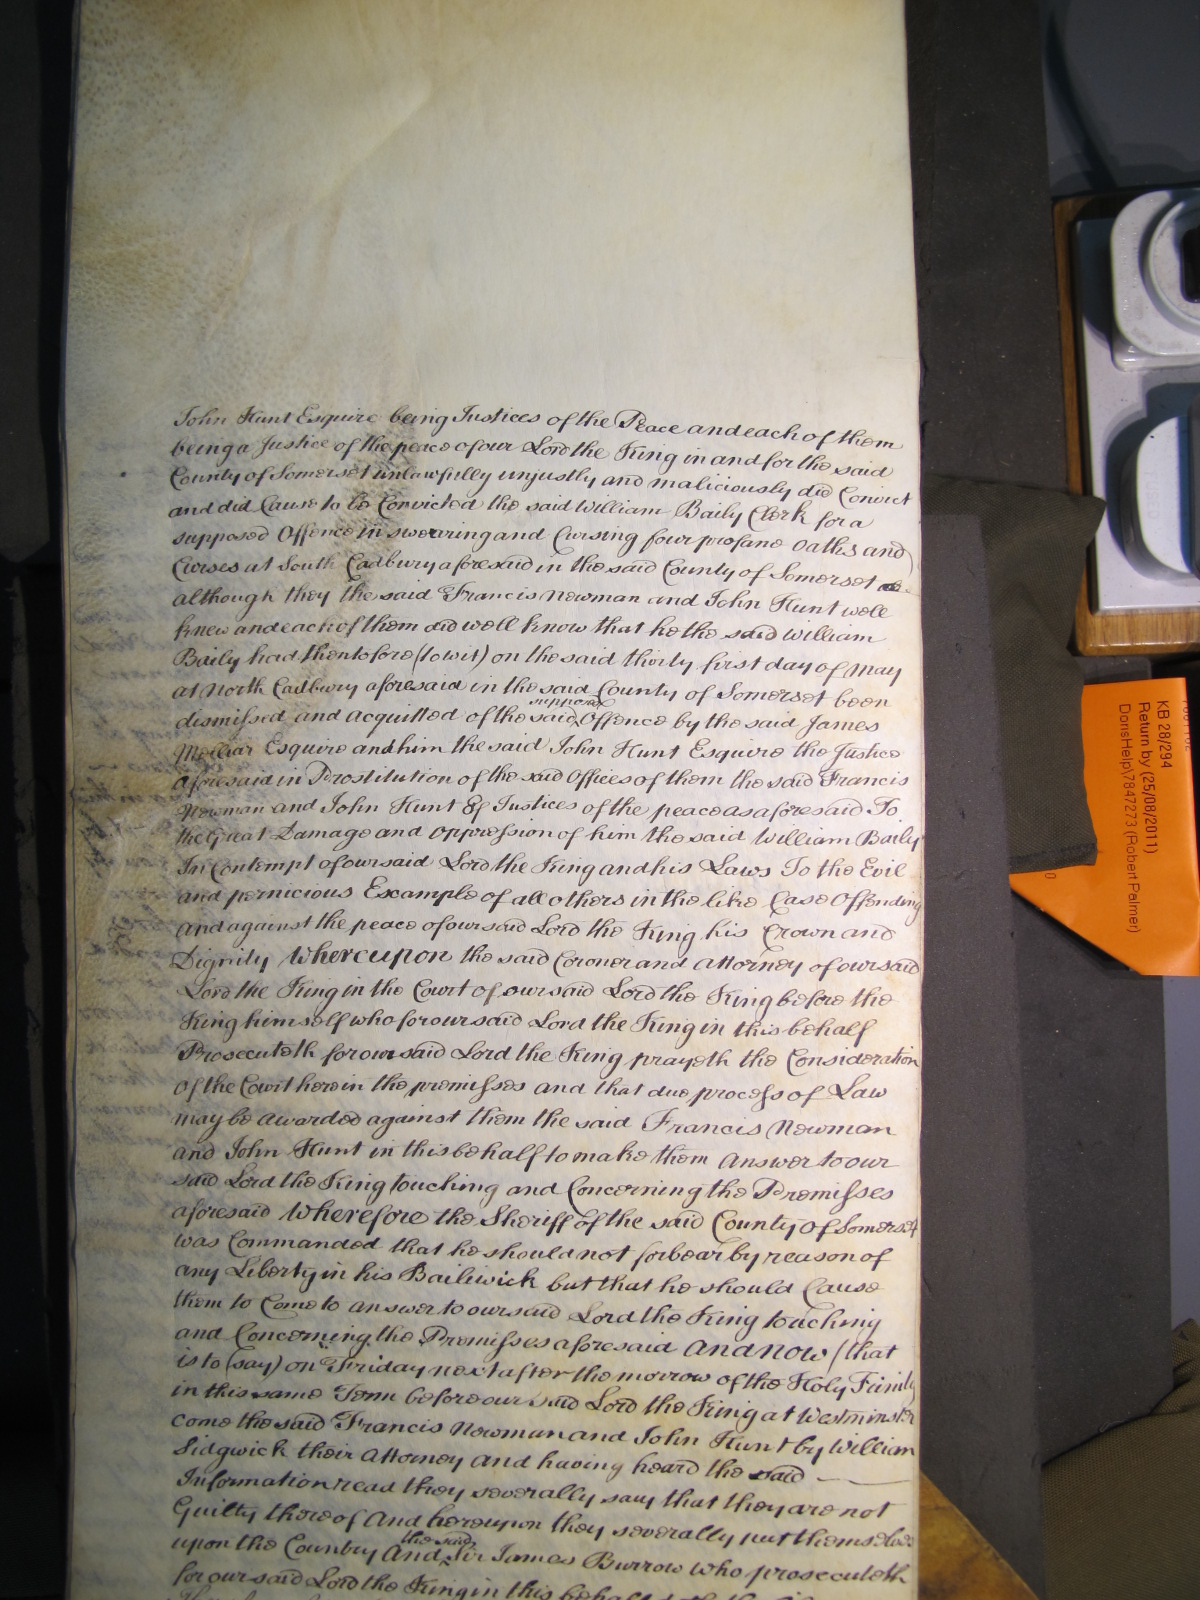 John Hunt Esquire being Justices of the Peace and each of them
being a Justice of the peace of our Lord the King in and for the said
County of Somerset unlawfully unjustly and maliciously did Convict
and did Cause to be Convicted the said William Baily Clerk for a
supposed Offence in swearing and Cursing four profane Oaths and
Curses at South Cadbury aforesaid in the said County of Somerset
although they the said Francis Newman and John Hunt well
knew and each of them did well know that he the said William
Baily had thentofore (to wit) on the said thirty first day of May
at North Cadbury aforesaid in the said County of Somerset been
dismissed and acquitted of the said supposed Offence by the said James
Medlicar Esquire and him the said John Hunt Esquire the Justice
aforesaid in Prostitution of the said Offices of them the said Francis
Newman and John Hunt as Justices of the peace as aforesaid To
the Great Damage and Oppression of him the said William Baily
In Contempt of our said Lord the King and his Laws To the Evil
and pernicious Example of all others in the like Case Offending
and against the peace of our said Lord the King his Crown and
Dignity Whereupon the said Coroner and Attorney of our said
Lord the King in the Court of our said Lord the King before the
King himself who for our said Lord the King in this behalf
Prosecuteth for our said Lord the King prayeth the Consideration
of the Court here in the premisses and that due process of Law
may be awarded against them the said Francis Newman
and John Hunt in this behalf to make them Answer to our
said Lord the King touching and Concerning the Premisses
aforesaid Wherefore the Sheriff of the said County of Somerset
was Commanded that he should not forbear by reason of
any Liberty in his Bailiwick but that he should Cause
them to Come to answer to our said Lord the King touching
and Concerning the Premisses aforesaid And now (that
is to say) on Friday next after the morrow of the Holy Trinity
in this same Term before our said Lord the King at Westminster
come the said Francis Newman and John Hunt by William
Sidgwick their Attorney and having heard the said
Information read they severally say that they are not
Guilty thereof And hereupon they severally put themselves
upon the Country And the said Sir James Burrow who prosecuteth
for our said Lord the King in this behalf
KB 28/294
Return by (25/08/2011)
DorisHelp\7847273 (Robert Palmer)